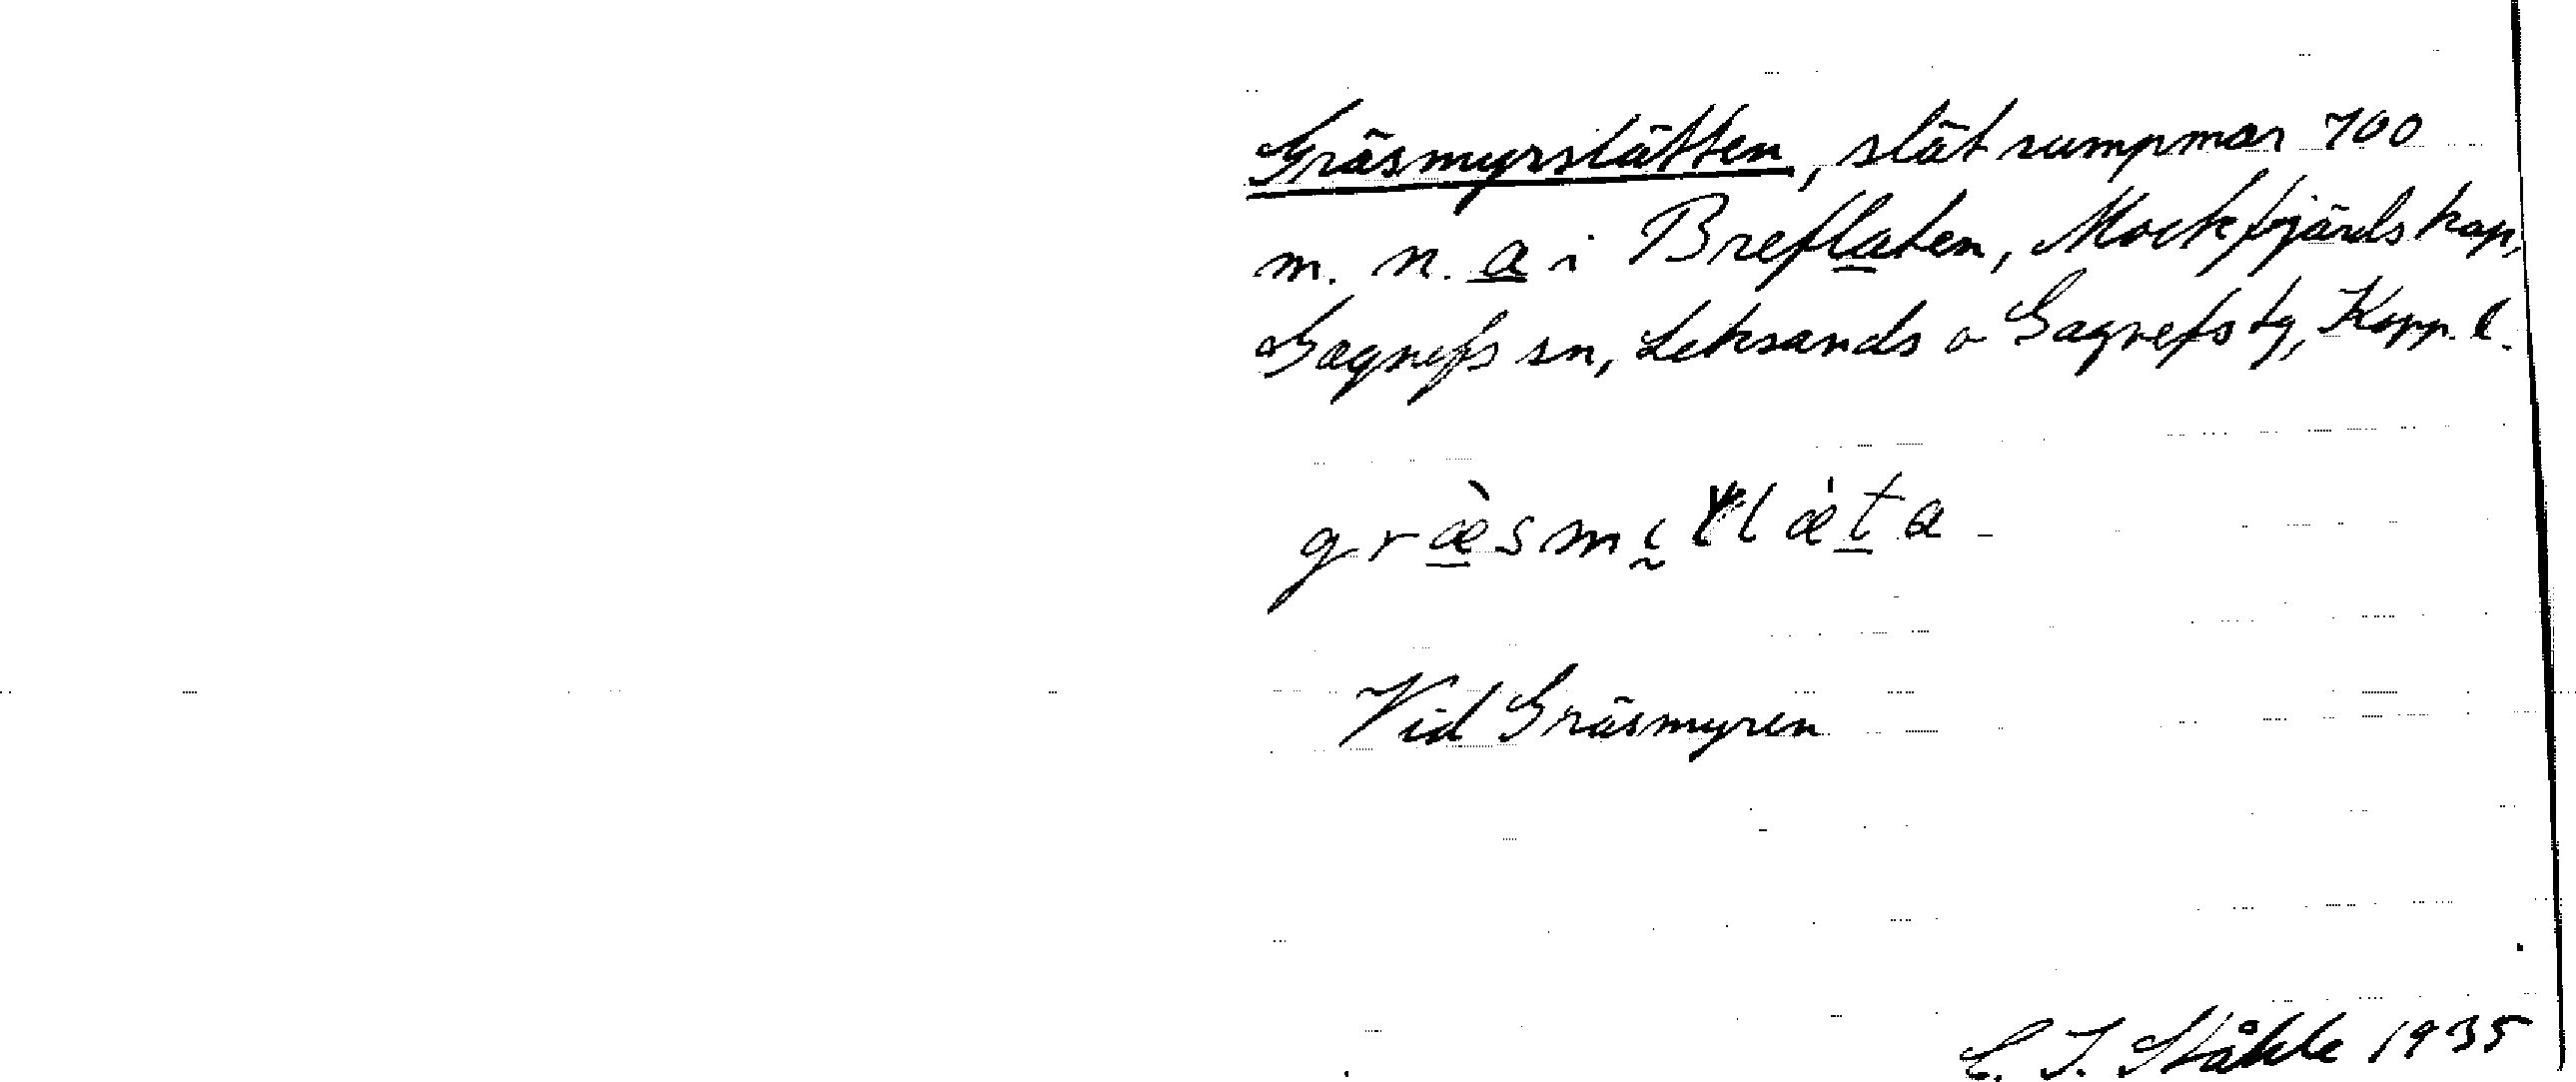 Gräsmyrslätten, slät sumpmar 700
m. n. a i Breflaten, Mockfjärds kap,
Gagnefs sn, Leksands o Gagnefs tg, Kopp. l.
Vid Gräsmyren
C. I. Ståhle 1935